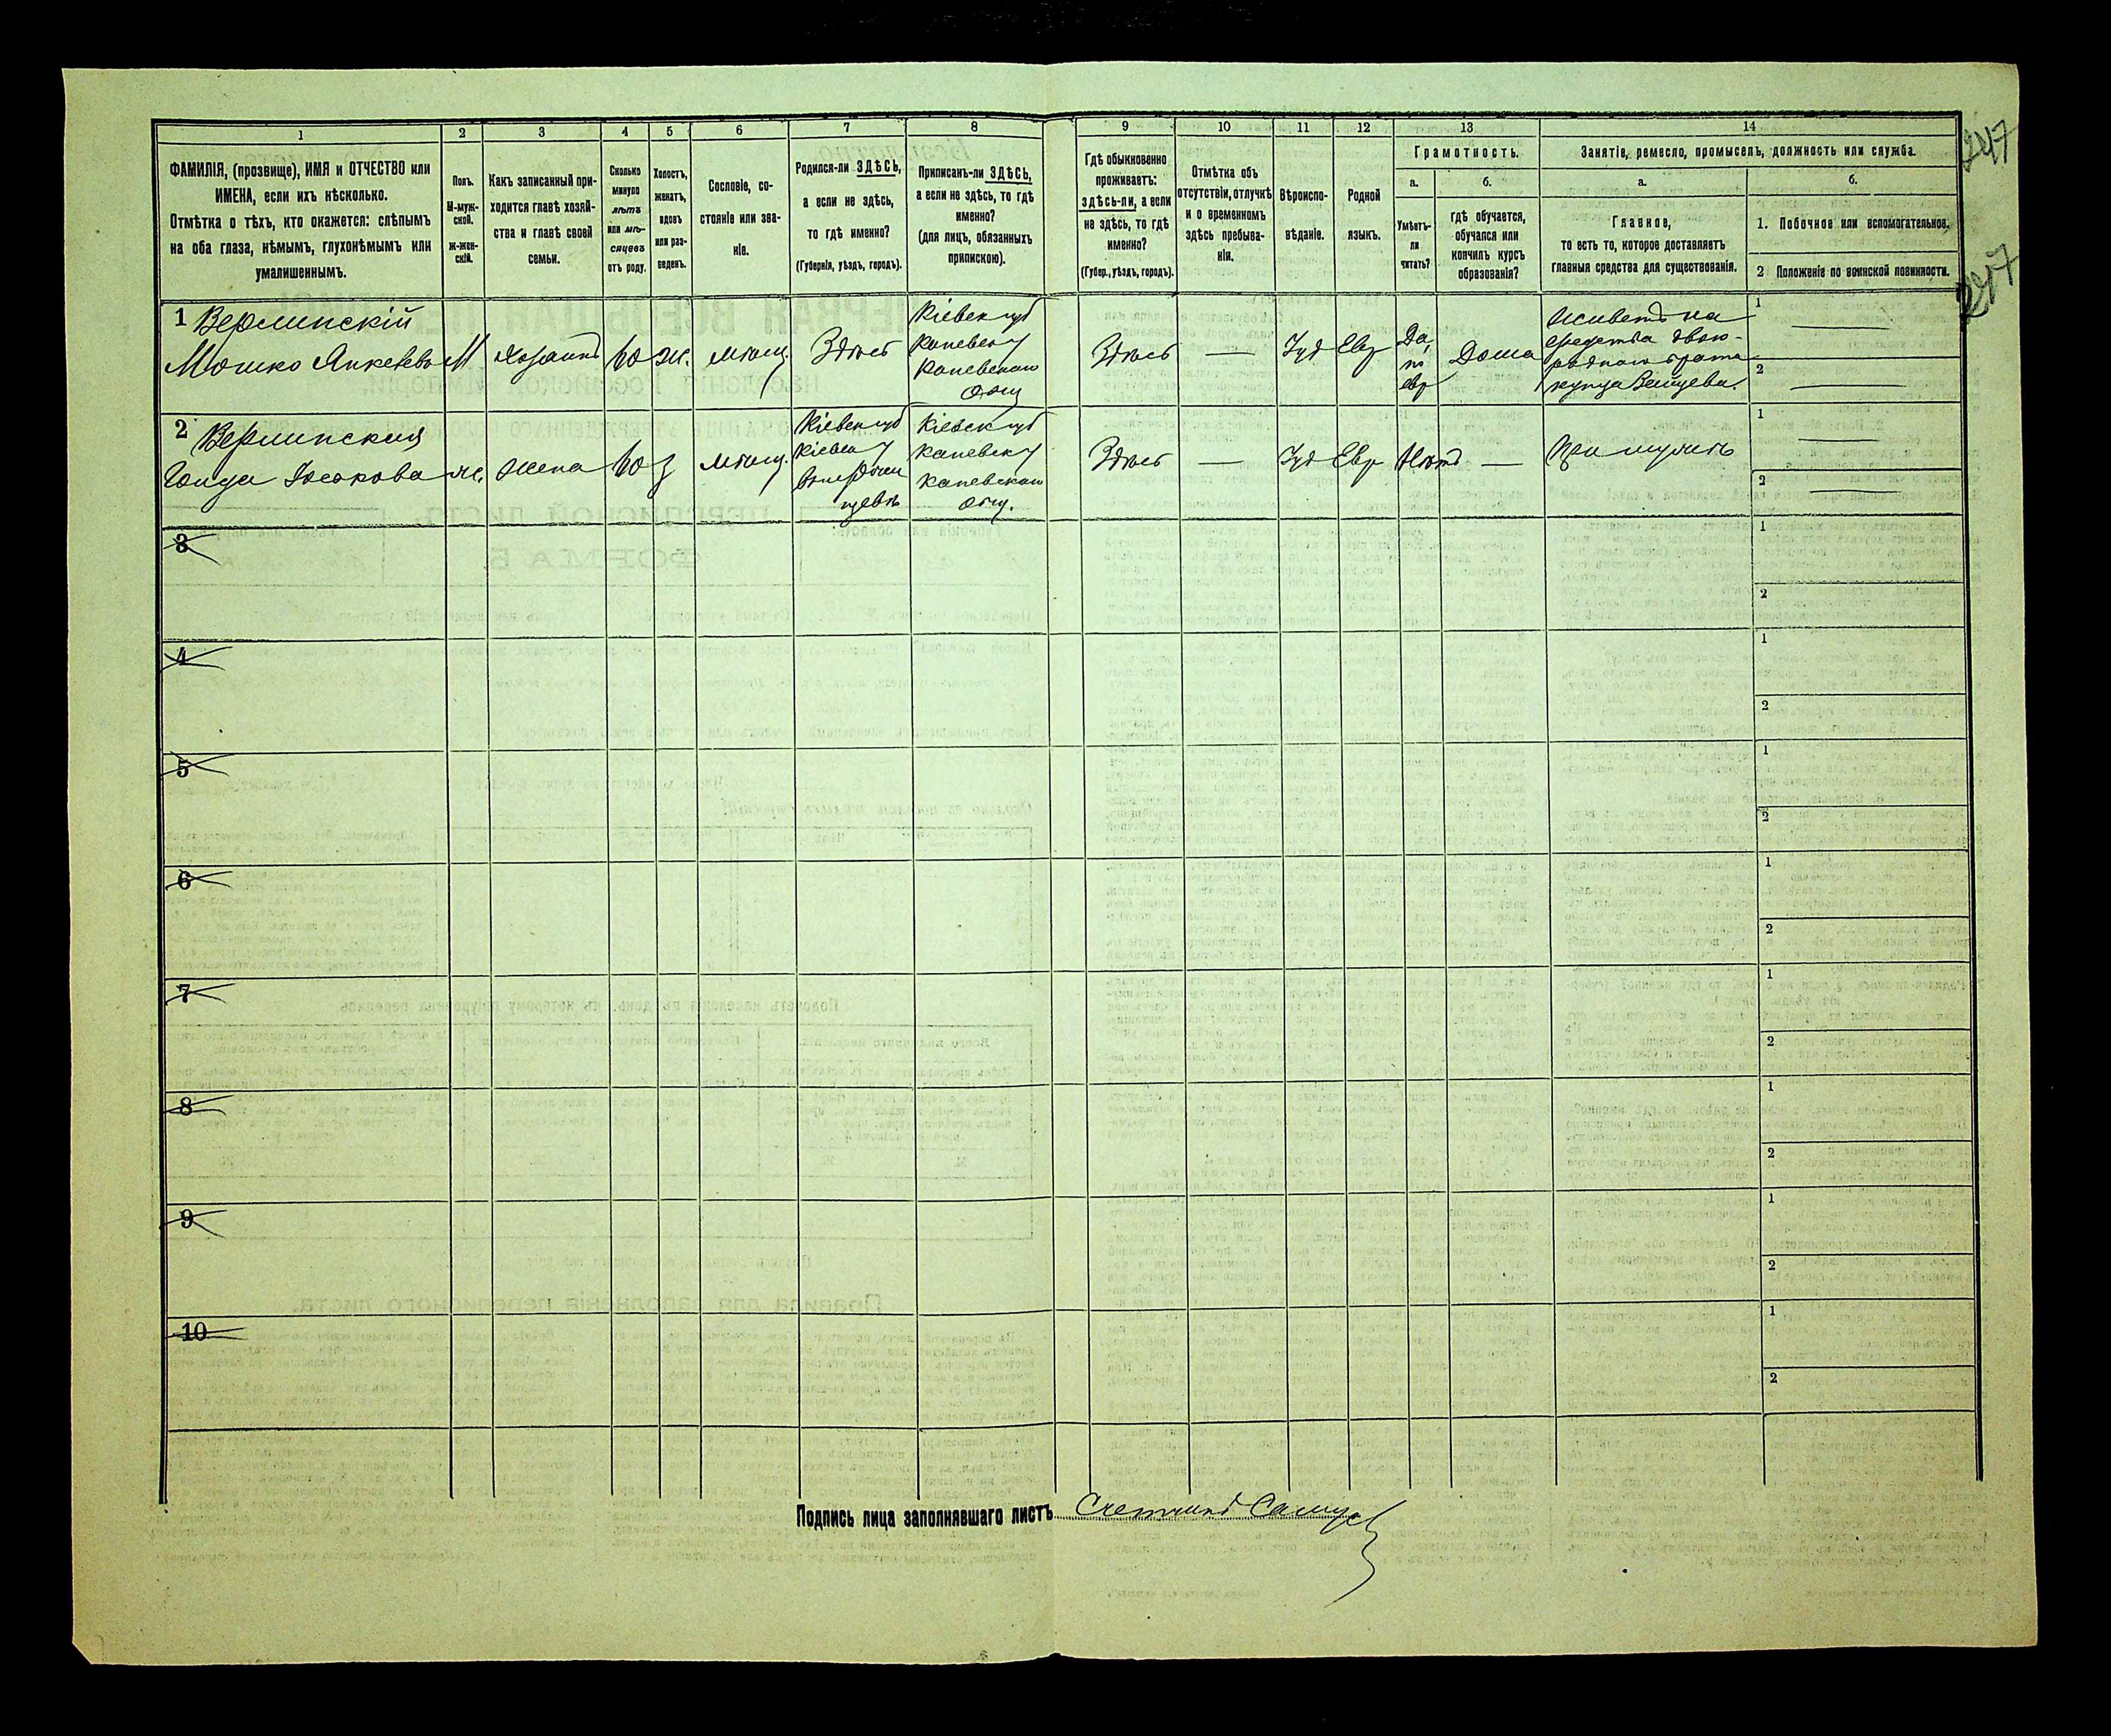 1
2
3
4
5
6
7
8
9
10
11
12
13
14
247
247
ФАМИЛІЯ, (прозвище), ИМЯ и ОТЧЕСТВО или
ИМЕНА, если ихъ нѣсколько.
Отмѣтка о тѣхъ, кто окажется: слѣпымъ
на оба глаза, нѣмымъ, глухонѣмымъ или
умалишеннымъ.
Полъ.
М-муж-
ской.
ж-жен-
скій.
Какъ записанный при-
ходится главѣ хозяй-
ства и главѣ своей
семьи.
Сколько
минуло
лѣтъ
или мѣ-
сяцевъ
отъ роду.
Холостъ,
женатъ,
вдовъ
или раз-
веденъ.
Сословіе, со-
стояніе или зва-
ніе.
Родился-ли ЗДѢСЬ,
а если не здѣсь,
то гдѣ именно?
(Губернія, уѣздъ, городъ).
Приписанъ-ли ЗДѢСЬ,
а если не здѣсь, то гдѣ
именно?
(для лицъ, обязанныхъ
припискою).
Гдѣ обыкновенно
проживаетъ:
здѣсь-ли, а если
не здѣсь, то гдѣ
именно?
(Губер., уѣздъ, городъ).
Отмѣтка объ
отсутствіи, отлучкѣ
и о временномъ
здѣсь пребыва-
ніи.
Вѣроиспо-
вѣданіе.
Родной
языкъ.
Грамотность.
а.
Умѣетъ-
ли
читать?
б.
гдѣ обучается,
обучался или
кончилъ курсъ
образованія?
Занятіе, ремесло, промыселъ, должность или служба.
а.
Главное,
то есть то, которое доставляетъ
главныя средства для существованія.
б.
1. Побочное или вспомогательное.
2 Положеніе по воинской повинности.
1 Верлинскій
Мошко Янкелевъ
М
Хозяинъ
60
Ж.
мѣщ.
Здѣсь
Кіевск губ
Каневск у
Каневскаго
Общ
Здѣсь
—
Іуд
Евр
Да,
по
евр
Дома
живетъ на
средства двою-
роднаго брата
купца Зайцева.
1 —
2 —
2 Верлинская
Іоськова
ж.
жена
60
з
мѣщ.
Кіевск губ
Кіевск у
Кіевск губ
Каневск у
Каневскаго
Общ.
Здѣсь
—
Іуд
Евр
Нѣтъ
—
При мужѣ
1 —
2 —
3
1
2
4
1
2
5
1
2
6
1
2
7
1
2
8
1
2
9
1
2
10
1
2
Подпись лица заполнявшаго листъ Счетчикъ